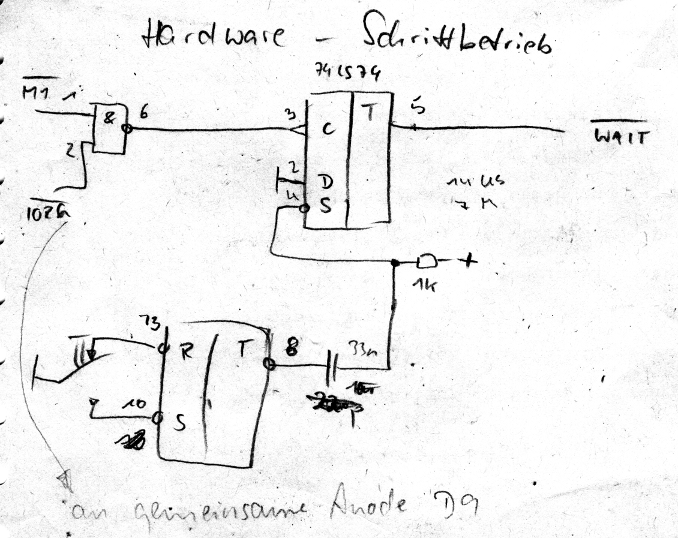 Hardware - Schrittbetrieb
74LS74
M1 1 & 6 3 C T 5 WAIT
2 2 D
4 S
IORQ
+
1k
13 R T 8 33n
10 S
an gemeinsame Anode D9